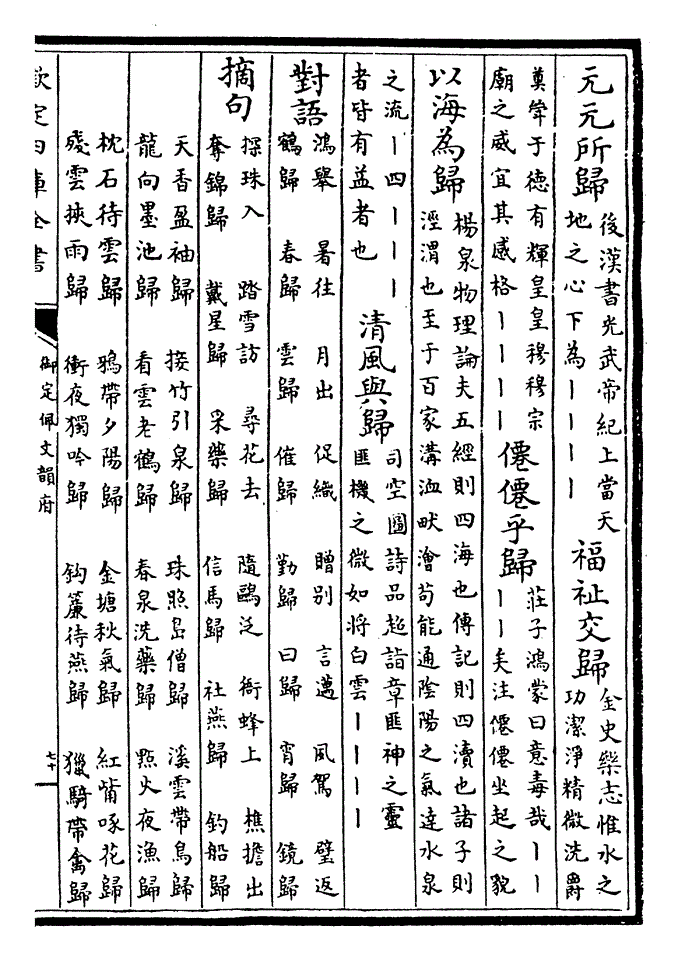 元元所歸
後漢書光武帝紀上當天
地之心下為丨丨丨丨
福祉交歸
金史樂志惟水之
功潔淨精微洗爵
奠斝于德有輝皇皇穆穆宗
廟之威宜其感格丨丨丨丨
僊僊乎歸
莊子鴻蒙曰意毒哉丨丨
丨丨矣注僊僊坐起之貌
以海為歸
楊泉物理論夫五經則四海也傳記則四瀆也諸子則
涇渭也至于百家溝洫畎澮苟能通陰陽之氣達水泉
之流丨四丨丨丨
者皆有益者也
清風與歸
司空圖詩品超詣章匪神之靈
匪機之微如將白雲丨丨丨丨
對語
鴻舉 暑往 月出 促織 贈別 言邁 風駕 璧返
鶴歸 春歸 雲歸 催歸 勤歸 曰歸 宵歸 鏡歸
摘句
探珠入 踏雪訪 尋花去 隨鷗泛 衙蜂上 樵擔出
奪錦歸 戴星歸 采藥歸 信馬歸 社燕歸 釣船歸
天香盈袖歸 接竹引泉歸 珠照島僧歸 溪雲帶鳥歸
龍向墨池歸 看雲老鶴歸 春泉洗藥歸 點火夜漁歸
枕石待雲歸 鴉帶夕陽歸 金塘秋氣歸 紅觜啄花歸
殘雲挾雨歸 衝夜獨吟歸 鈎簾待燕歸 獵騎帶禽歸
欽定四庫全書
御定佩文韻府
七十